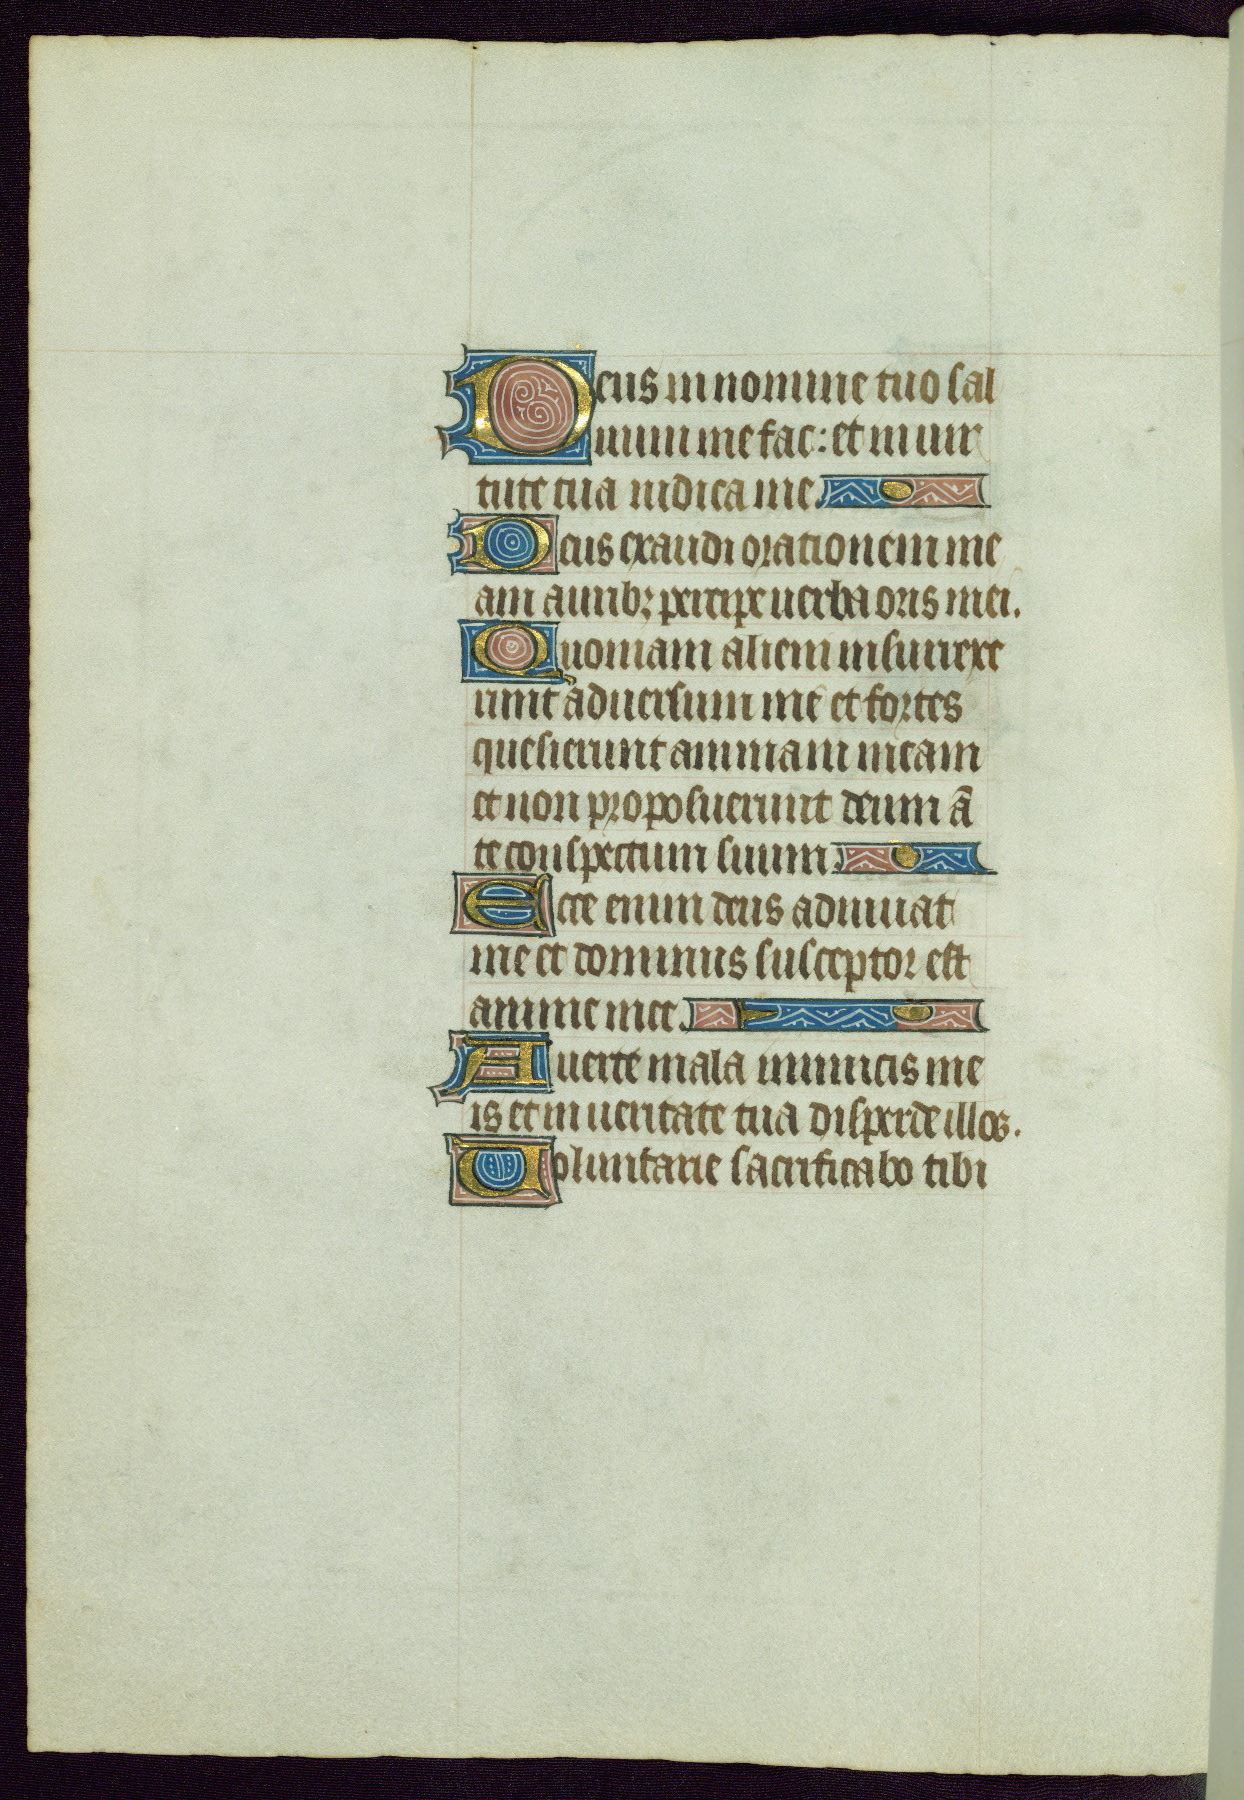 Deus in nomine tuo sal
uum me fac: et in uir
tute tua iudica me.
Deus exaudi orationem me
am auribꝫ percipe uerba oris mei.
Quoniam alieni insurrexe
runt aduersum me et fortes
quesierunt animam meam
et non proposuerunt deum ā
te conspectum suum.
Ecce enim deus adiuuat
me et dominus susceptor est
anime mee.
Auerte mala inimicis me
is et in ueritate tua disperde illos.
Uoluntarie sacrificabo tibi